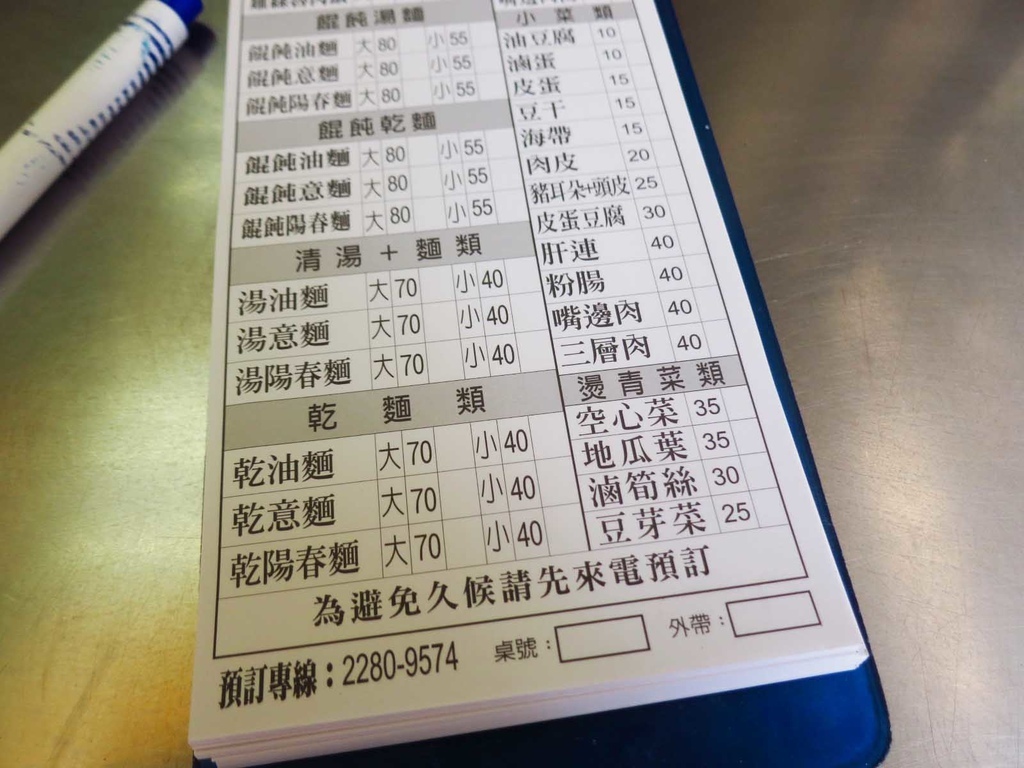 餛飩湯麵
餛飩油麵 大 80 小 55
餛飩意麵 大 80 小 55
餛飩陽春麵 大 80 小 55
餛飩乾麵
餛飩油麵 大 80 小 55
餛飩意麵 大 80 小 55
餛飩陽春麵 大 80 小 55
清湯+麵類
湯油麵 大 70 小 40
湯意麵 大 70 小 40
湯陽春麵 大 70 小 40
乾麵類
乾油麵 大 70 小 40
乾意麵 大 70 小 40
乾陽春麵 大 70 小 40
小菜類
油豆腐 10
滷蛋 10
皮蛋 15
豆干 15
海帶 15
肉皮 20
豬耳朵+頭皮 25
皮蛋豆腐 30
肝連 40
粉腸 40
嘴邊肉 40
三層肉 40
燙青菜類
空心菜 35
地瓜葉 35
滷筍絲 30
豆芽菜 25
為避免久候請先來電預訂
預訂專線：2280-9574 桌號： 外帶：